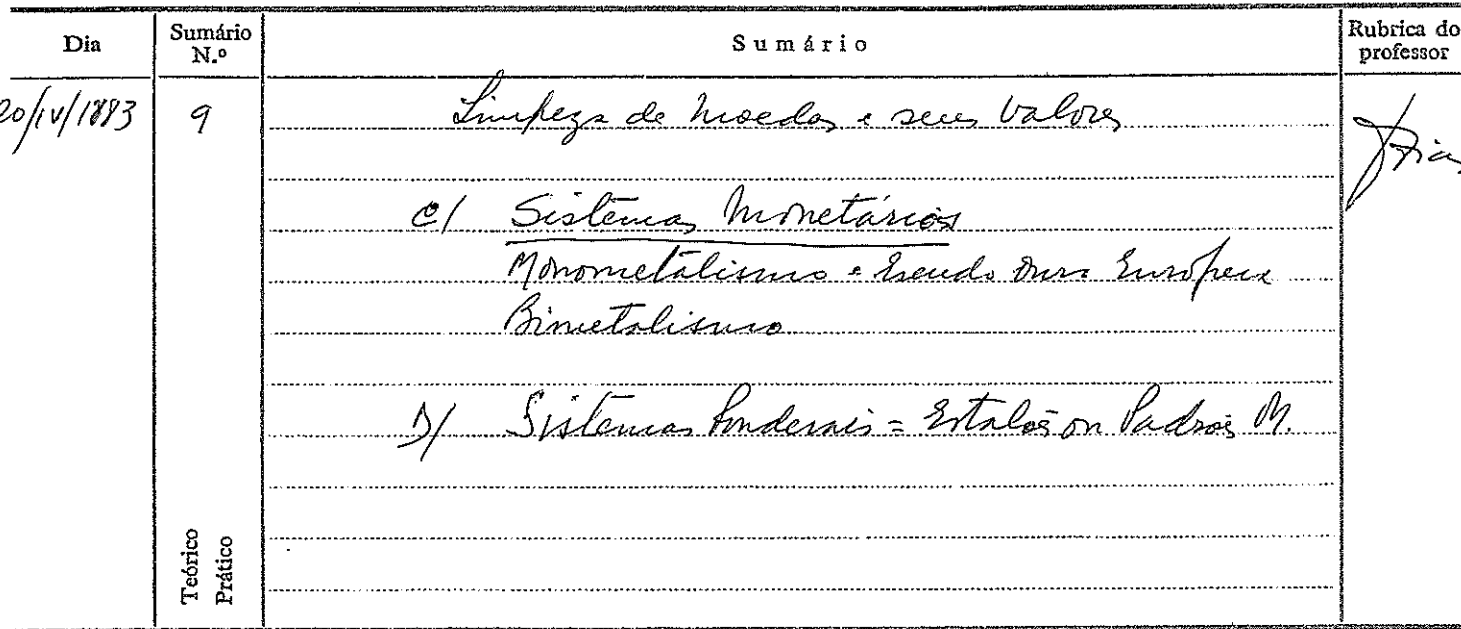 Dia
Sumário N.º
Sumário
Rubrica do professor
20/IV/1983
9
Limpeza de Moedas e seus Valores
Dias
C/ Sistemas Monetários
Monometalismo = Escudo Ouro Europeu
Bimetalismo
D/ Sistemas Ponderais = Estalões ou Padrões M.
Teórico
Prático